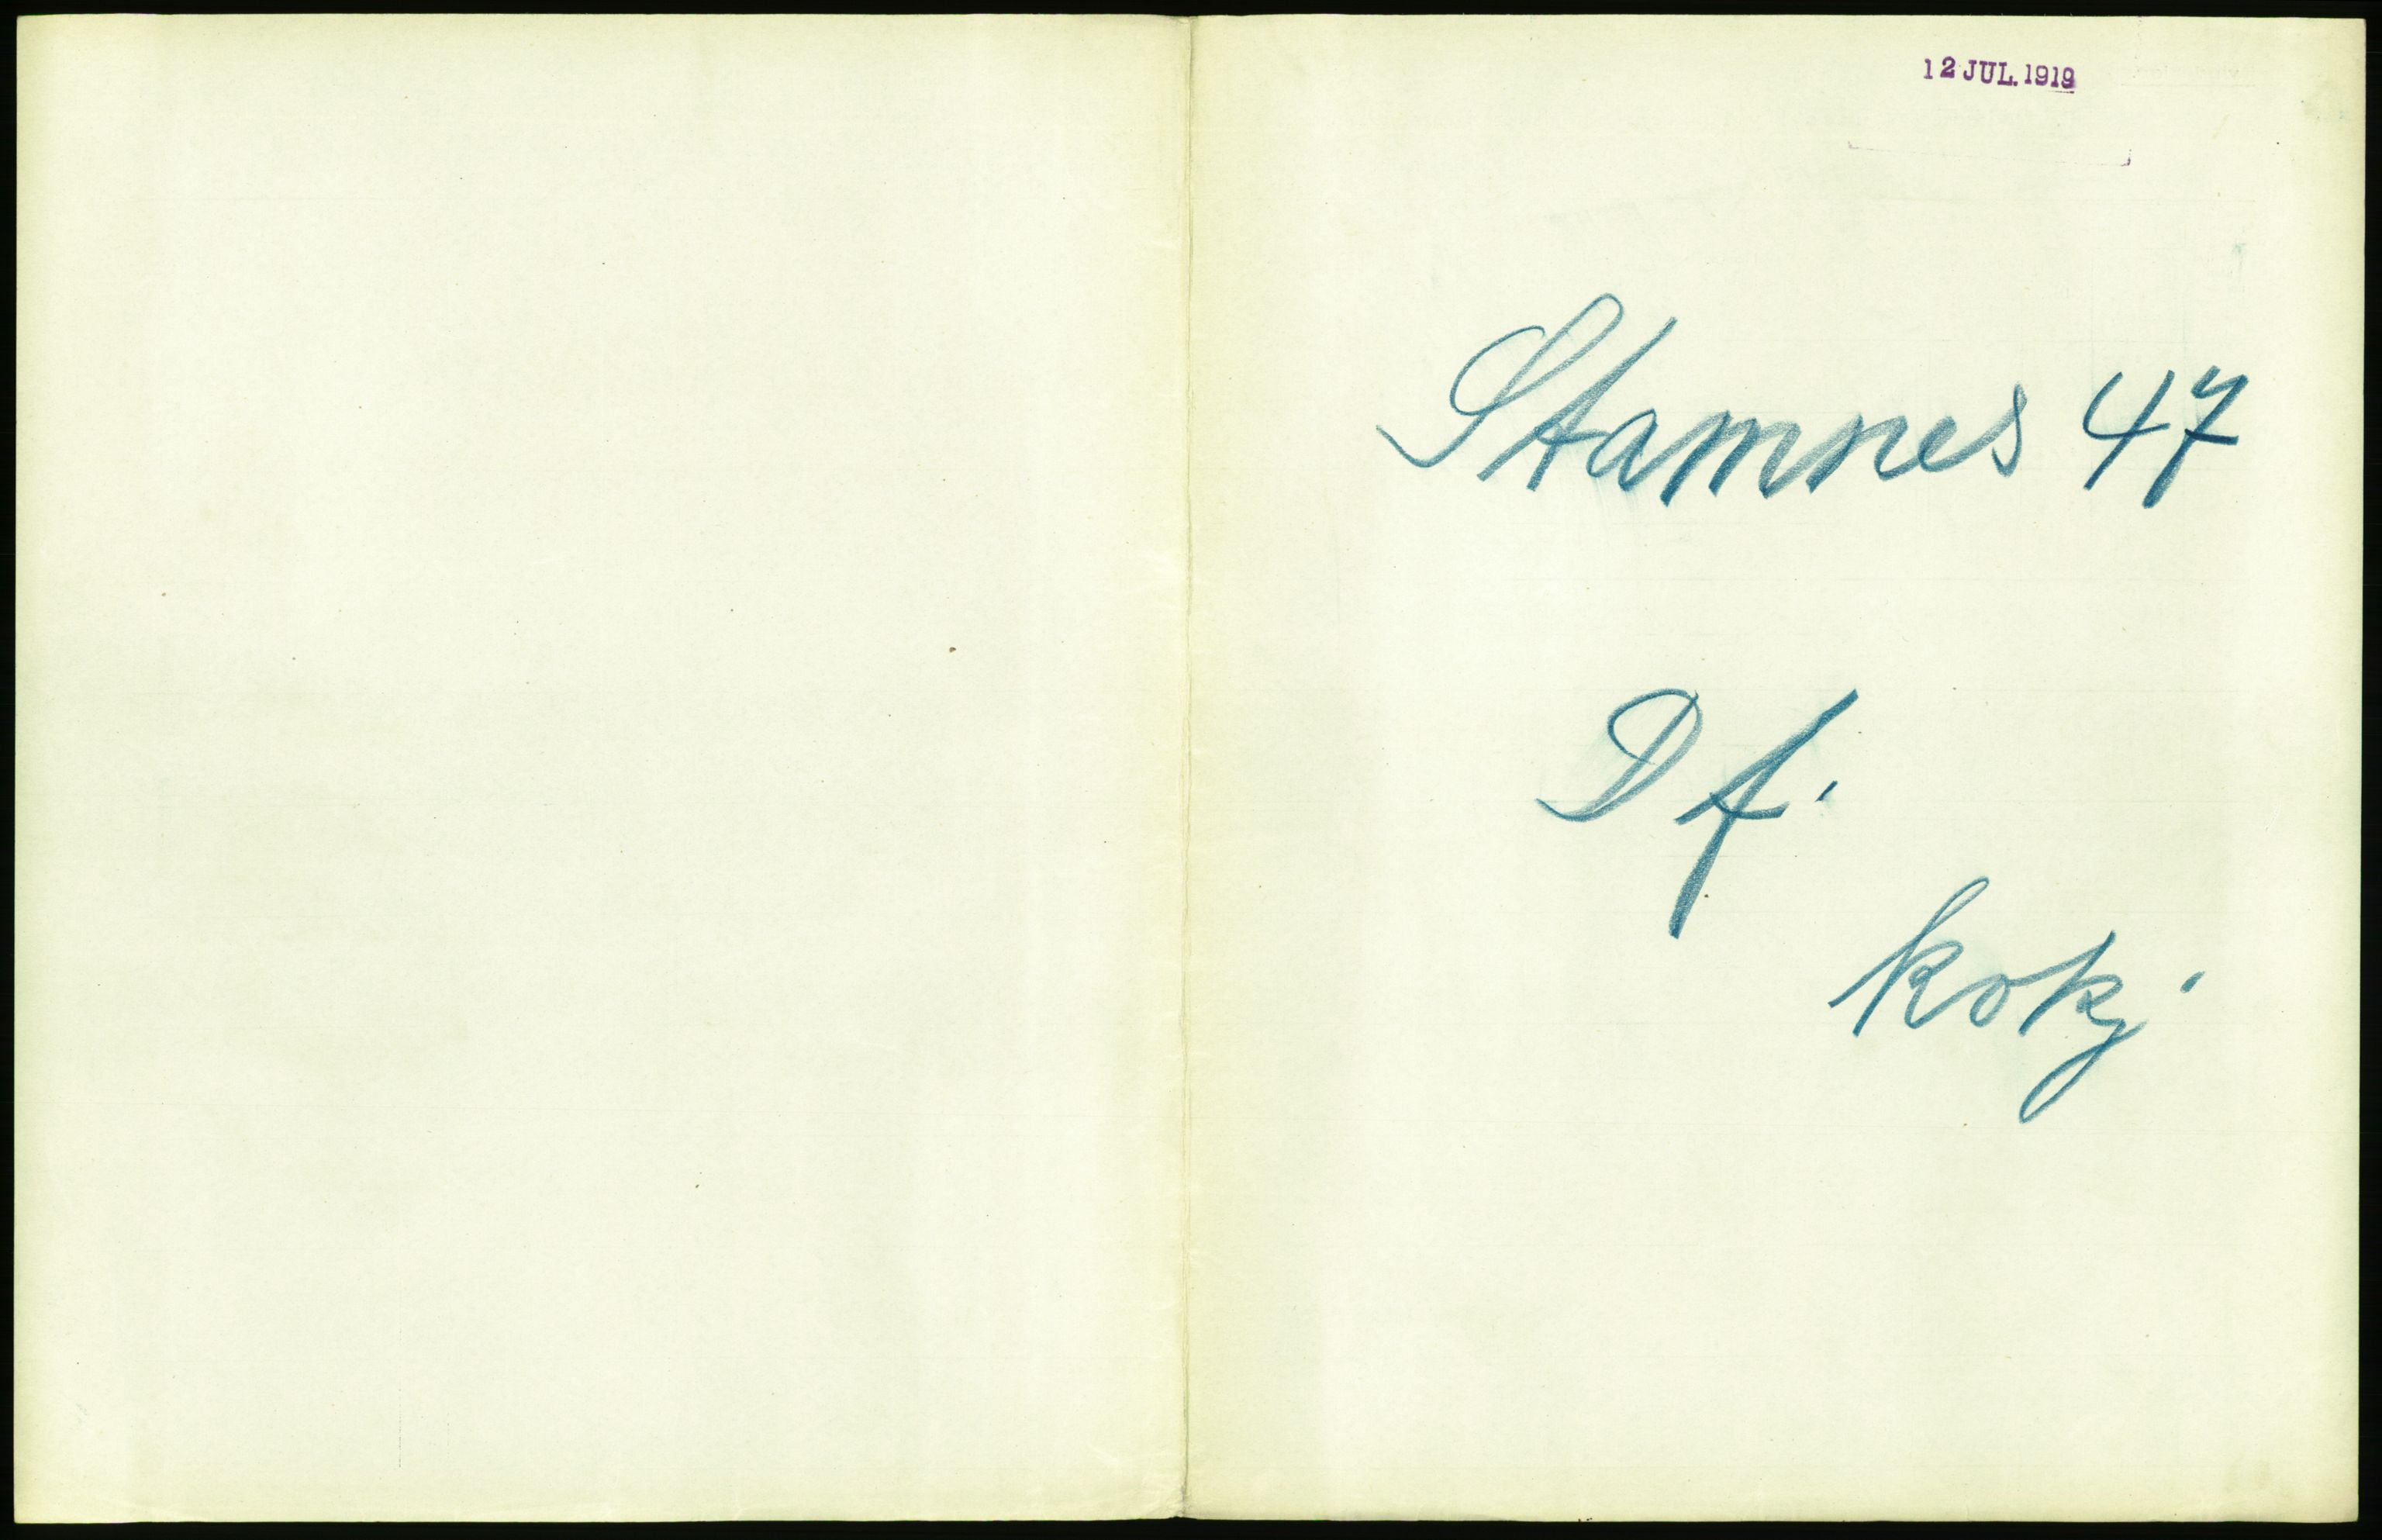 12 JUL. 1919
Stamnes 47
Df.
kokj.